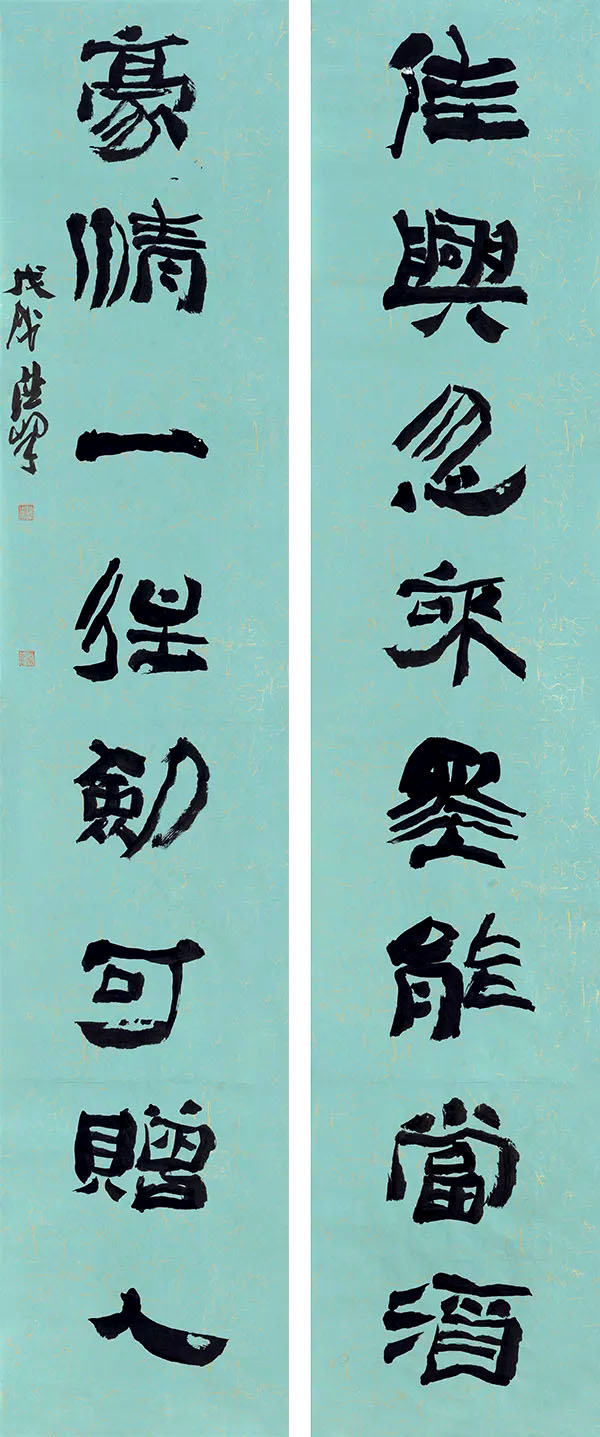 佳興忽來墨能當酒
豪情一往劍可贈人
戊戌